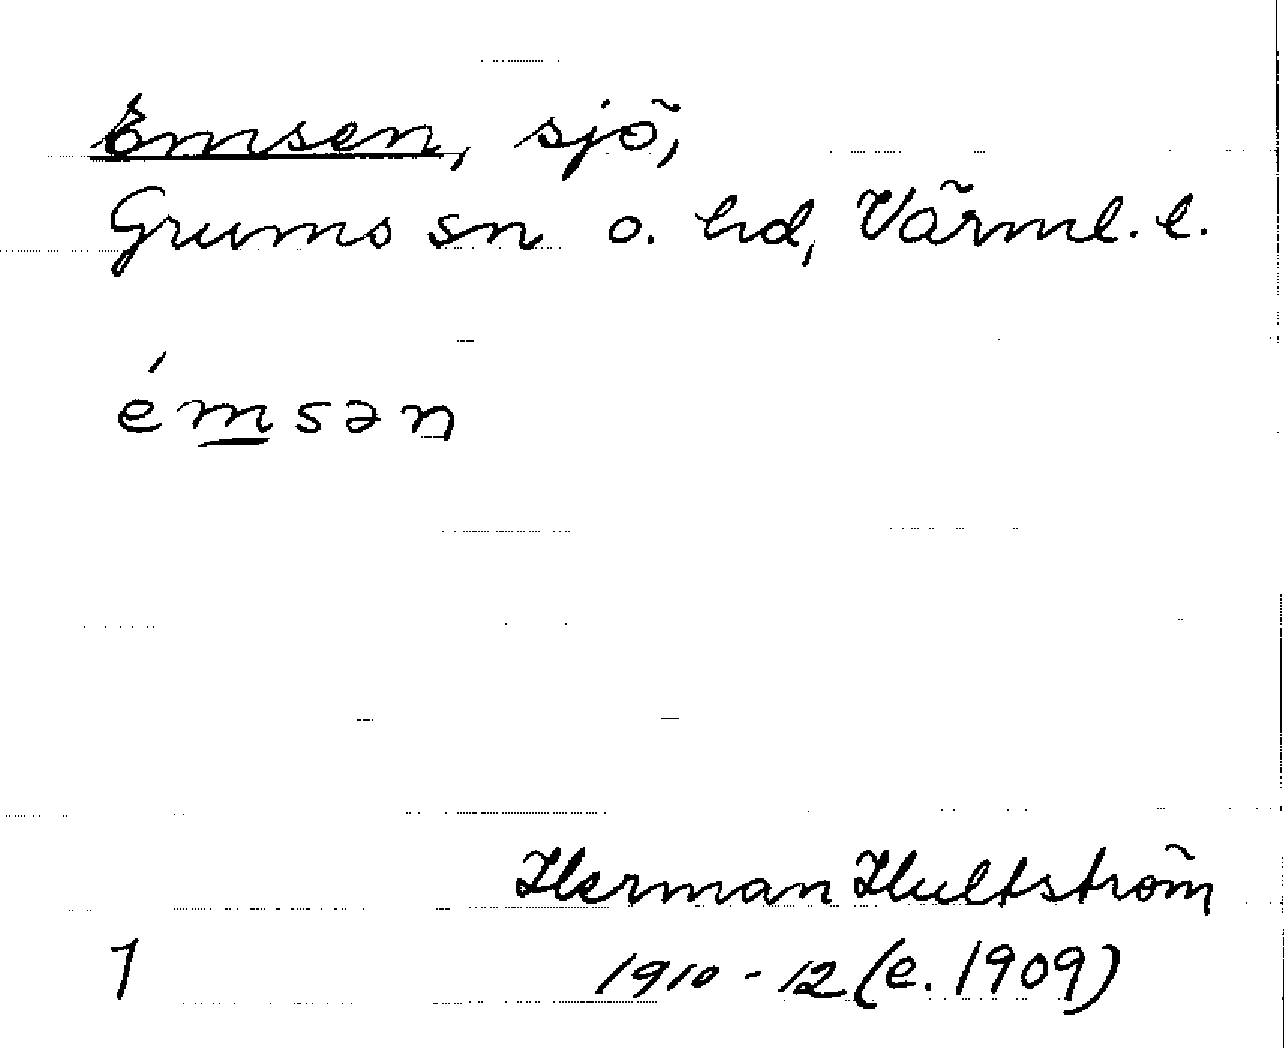 Emsen, sjö,
Grums sn o. hd, Värml. l.
émsən
Herman Hultström
1 1910-12 (e. 1909)